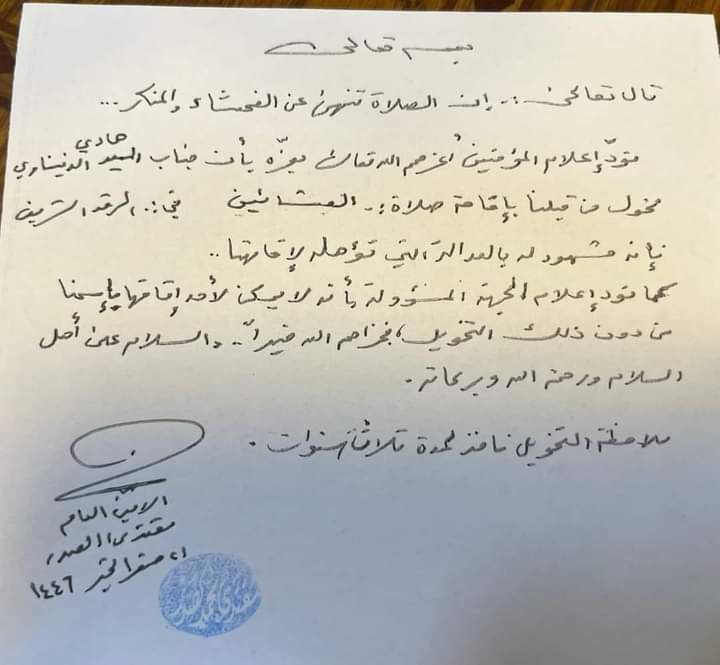 بسمه تعالى
قال تعالى :. إن الصلاة تنهى عن الفحشاء والمنكر...
نودّ إعلام المؤمنين أعزهم الله تعالى بعزّه بأن جناب السيد هادي الدنيناوي
مخول من قبلنا بإقامة صلاة :. العشائين في :. المرقد الشريف
فإنه مشهود له بالعدالة التي تؤهله لإقامتها..
كما نود إعلام الجهة المسؤولة بأنه لا يمكن لأحد إقامتها بإسمنا
من دون ذلك التخويل، فجزاهم الله خيراً.. والسلام على أهل
السلام ورحمة الله وبركاته.
ملاحظة التخويل نافذ لمدة ثلاثة سنوات.
الأمين العام
مقتدى الصدر
٢١ صفر الخير ١٤٤٦